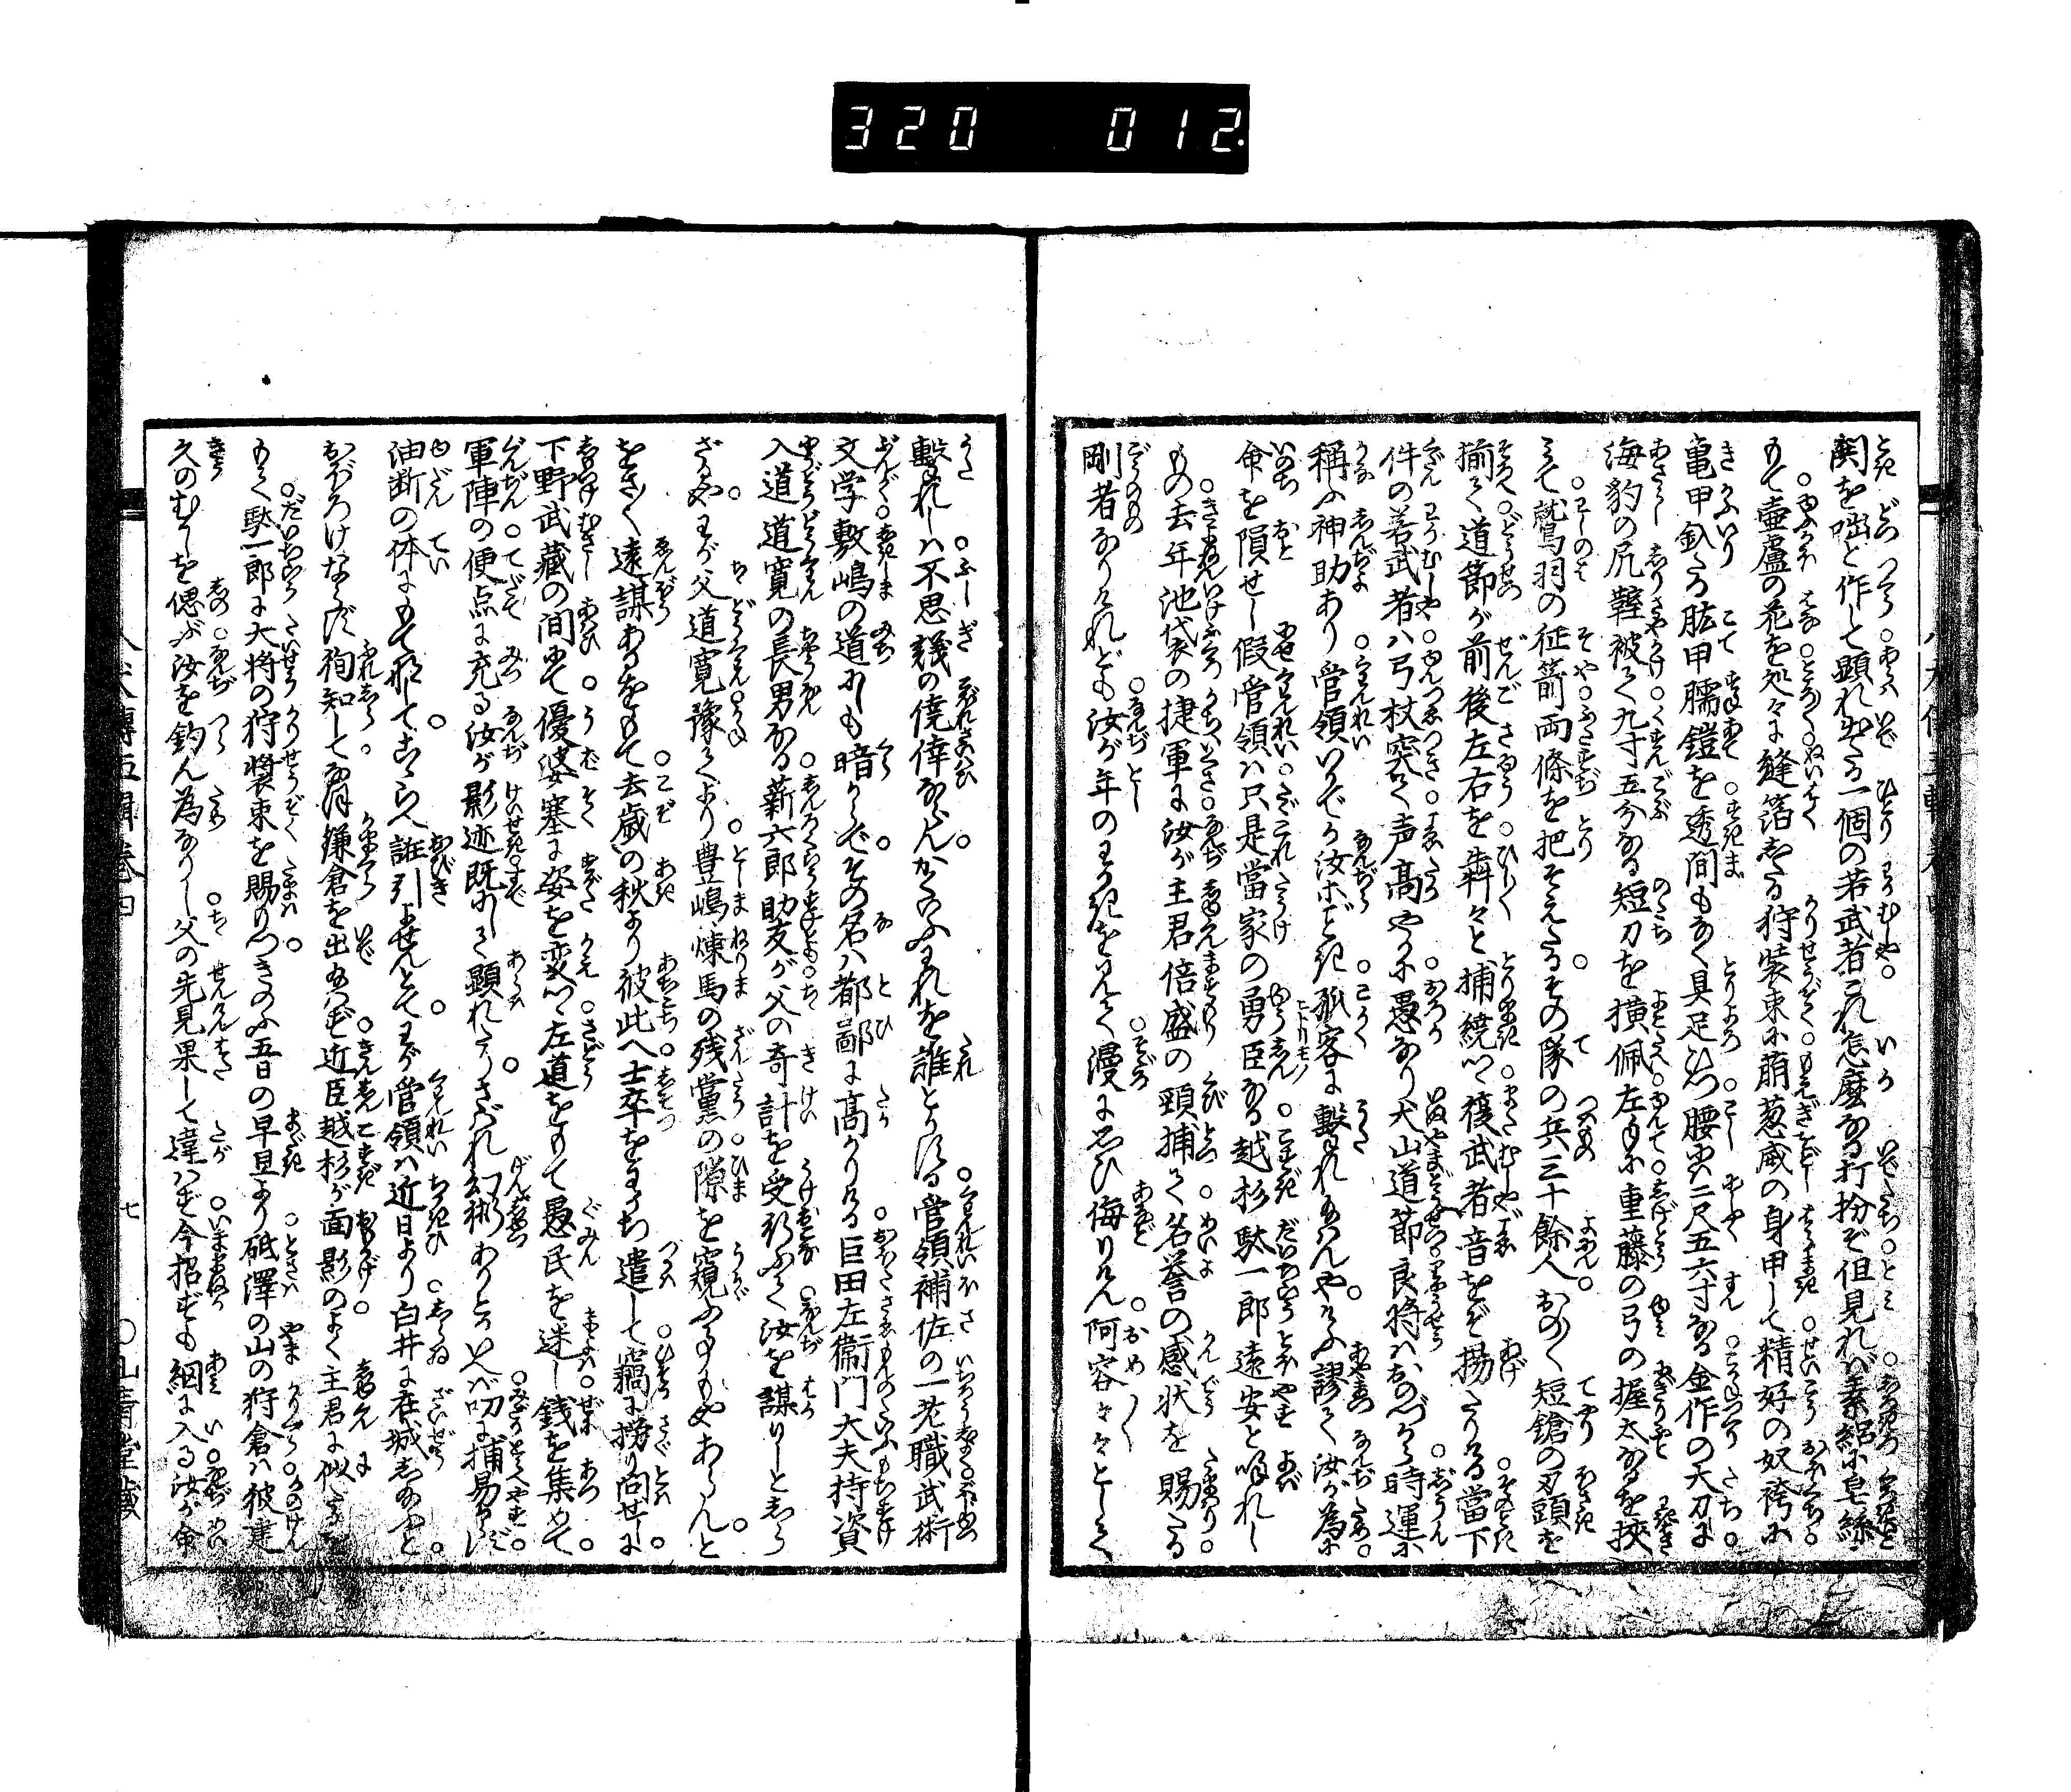 320 012
鬨を咄と作して顕れ出たる一個の若武者これ怎麼なる打扮ぞ但見れば素絽に皂絲
もて壷盧の花を処々に縫箔したる狩装束に萌葱威の身甲して精好の奴袴に
亀甲釻たる肱甲臑鎧を透間もなく具足しつ腰には二尺五六寸なる金作の大刀に
海豹の尻鞘被て九寸五分なる短刀を横佩左手に重藤の弓の握太なるを挾
みて鷲羽の征箭両條を把そえたるその隊の兵三十餘人おの／＼短鎗の刃頭を
揃て道節が前後左右を犇々と捕繞つゝ復武者音をぞ揚たりける當下
件の若武者ハ弓杖突て声高やかに愚なり犬山道節良將ハおのづから時運に
稱ふ神助あり管領いかでか汝ホごとき孤客に撃れ給はんやさるを謬て汝が為に
命を隕せし假管領ハ只是當家の勇臣なる越杉駄一郎遠安と呼れし
もの去年池袋の捷軍に汝が主君倍盛の頸捕て名誉の感状を賜たる
剛者なりけれども汝が年のわかきを見て漫に思ひ侮りけん阿容々々として
撃れしハ不思議の僥倖ならんかくいふわれを誰とかする管領補佐の一老職武術
文学敷嶋の道にしも暗からぞその名ハ都鄙に高かりける巨田左衞門大夫持資
入道道寛の長男なる薪六郎助友が父の竒計を受行ふて汝を謀りしとしら
ざるやわが父道寛豫てより豊嶋煉馬の残黨の隙を窺ふ事もやあらんと
をさ／＼遠謀あるをもて去歳の秋より彼此へ士卒をわかち遣して竊に撈り問せしに
下野武藏の間にて優婆塞に姿を変つゝ左道をもて愚民を迷し銭を集めて
軍陣の便点に充る汝が影迹既にして顕れたりさばれ幻術ありといへバ叨に捕易からず
油断の体にもて那してこゝらへ誑引よせんとてわが管領ハ近日より白井に在城し給ふと
おぼろけならず徇知して有繋鎌倉を出給はず近臣越杉が面影のよく主君に似たるを
もて駄一郎に大将の狩裝束を賜りつきのふ五日の早旦より砥澤の山の狩倉ハ彼建
久のむかしを偲ぶ汝を釣ん為なりし父の先見果して違ハず今招ずも網に入る汝が命
八犬傳五輯巻四
七
〇山青堂藏